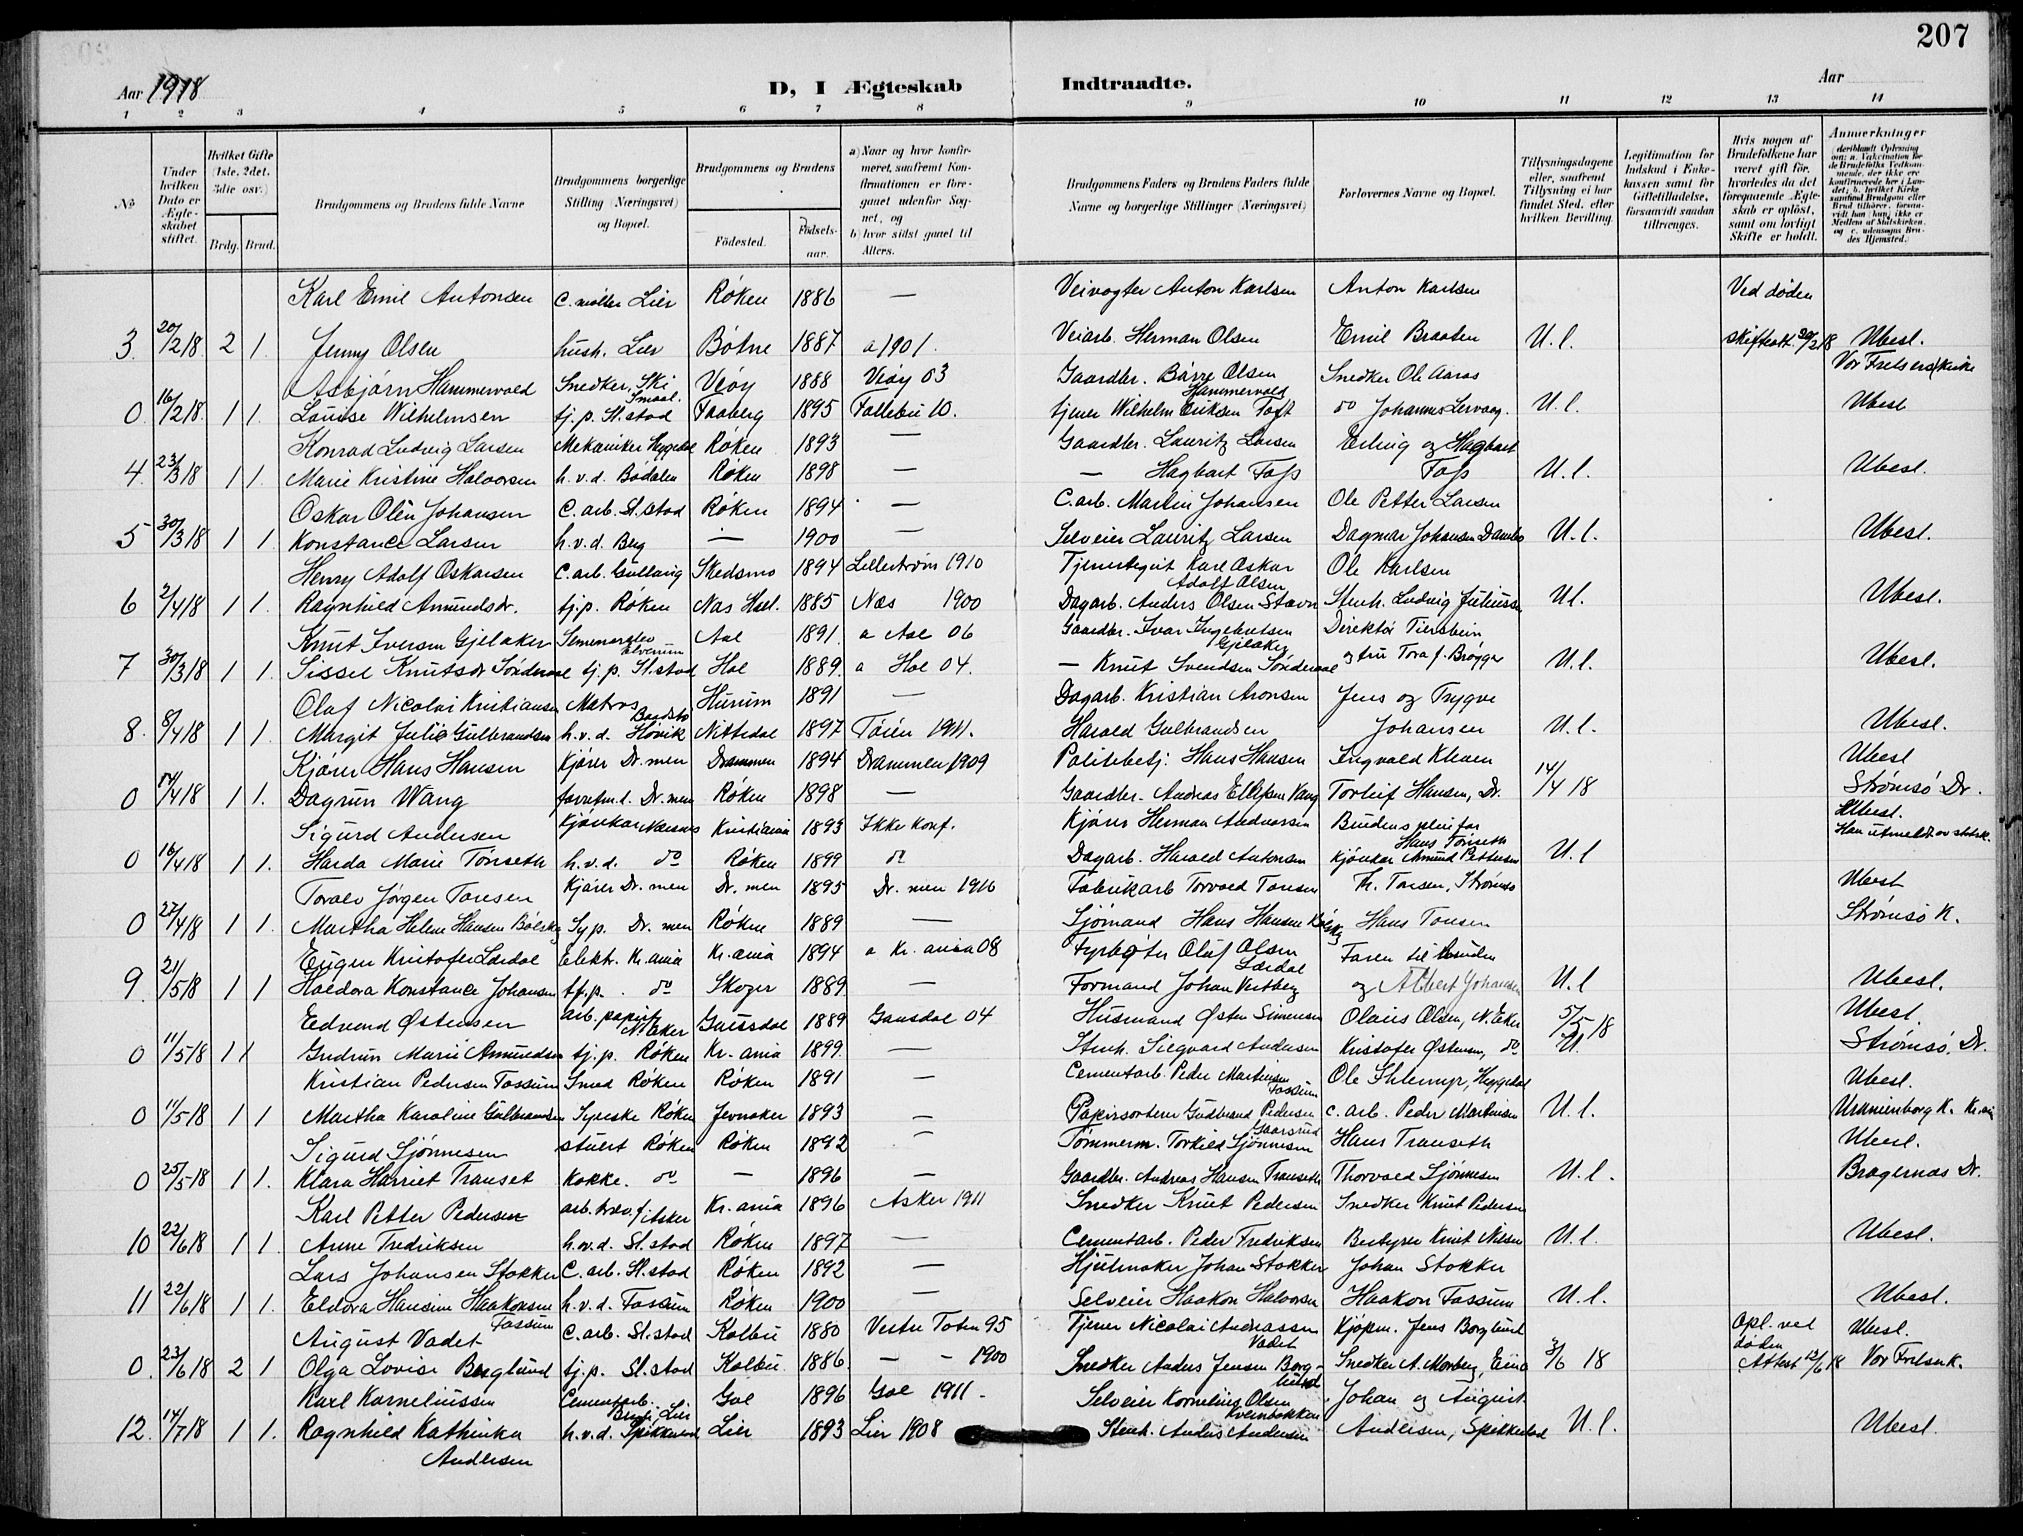 207
Aar 1918
D, I Ægteskab Indtraadte.
Aar
1 2 3 4 5 6 7 8 9 10 11 12 13 14
No
Under hvilken Dato er Ægteskabet stiftet.
Hvilket Gifte (1ste, 2det, 3die osv.)
Brdg. Brud.
Brudgommens og Brudens fulde Navne
Brudgommens borgerlige Stilling (Næringsvei) og Bopæl.
Brudgommens og Brudens
Fødested. Fødselsaar.
a) Naar og hvor konfirmeret, saafremt Konfirmationen er foregaaet udenfor Sognet, og
b) hvor sidst gaaet til Alters.
Brudgommens Faders og Brudens Faders fulde Navne og borgerlige Stillinger (Næringsvei)
Forlovernes Navne og Bopæl.
Tillysningsdagene eller, saafremt Tillysning ei har fundet Sted, efter hvilken Bevilling.
Legitimation for Indskud i Enkekassen samt for Giftetilladelse, forsaavidt saadan tiltrænges.
Hvis nogen af Brudefolkene har været gift før, hvorledes da det foregaaende Ægteskab er opløst, samt om lovligt Skifte er holdt.
Anmerkninger deriblandt Oplysning om: a. Vakcination for de Brudefolks Vedkommende, der ikke ere konfirmerede her i Landet; b. hvilket Kirkesamfund Brudgom eller Brud tilhører, forsaavidt han (hun) ikke er Medlem af Statskirken, og c. udensogns Brudes Hjemsted.
Karl Emil Antonsen C. møller Lier Røken 1886 — Veivogter Anton Karlsen Anton Karlsen Ved døden
3. 20/2 18 2 1. Jenny Olsen hush. Lier Botne 1887 a 1901. Veiarb. Herman Olsen Emil Braaten U. l. skifteatt. 20/2 18 Ubesl.
Asbjørn Hammervold Snedker, Ski Veøy 1888 Veøy 03 Gaardbr. Bårre Olsen Hammervold Snedker Ole Aaras Vor Frelsers Kirke
0. 16/2 18. 1 1. Louise Wilhelmsen tj. p. Sl.stad Faaberg 1895 Follebu 10. tjener Wilhelm Eriksen Toft do Johannes Lervaag. U. l. Ubesl
Konrad Ludvig Larsen Mekaniker Heggedal Røken 1893 — Gaardbr. Lauritz Larsen Erling og Hagbart
4. 23/3 18 1 1. Marie Kristine Halvorsen h. v. d. Bødalen Røken 1898 — — Hagbart Foss Foss U. l. Ubesl.
Oskar Olin Johansen C. arb. Sl.stad Røken 1894 — C. arb. Martin Johansen Ole Petter Larsen
5 30/3 18 1 1 Konstance Larsen h. v. d. Berg — 1900 — Selveier Lauritz Larsen Dagmar Johansen U. l. Ubesl.
Henry Adolf Oskarsen C. arb. Gullaug Skedsmo 1894 Lillestrøm 1910 Karl Oskar Adolf Olsen Ole Karlsen
6 2/4 18 1 1. Ragnhild Amundsdr. tj. p. Røken Nas Hal. 1885 Nas 1900 Dagarb. Anders Olsen Stenh. Ludvig Juliussen U l. Ubesl.
Knut Iversen Gjelaker Seminarelev Elverum Aal 1891. a Aal 06 Gaardbr. Ivar Ingebretsen Gjelaker Direktør
7 30/3 18 1 1. Sissel Knutsdr Sønderaal tj. p. Sl.stad Hol 1889. a Hol 04. — Knut Svendsen Sønderaal og fru Tora f. Brøgger U. l. Ubesl.
Olaf Nicolai Kristiansen Matros Hurum 1891 — Dagarb. Kristian Aronsen Jens og Trygve
8. 8/4 18 1 1. Margit Julie Gulbrandsen h. v. d. Høvik Nittedal 1897 Tøien 1911. Harald Gulbrandsen Johansen U. l. Ubesl.
Kjører Hans Hansen Kjører Dr. men Drammen 1894 Drammen 1909 Politibetj. Hans Hansen Ingvald Kleven 14/4 18 Ubesl
0 14/4 18 1 1. Dagrun Wang Dr. men Røken 1898 — Gaardbr. Andreas Ellefsen Vang Torleif Hansen, Dr. Strømsø Dr.
Sigurd Andersen Kjønkar Nærsnes Kristiania 1893 Ikke konf. Kjører Herman Andreassen Brudens pleiefar Hans Tønseth Ubesl. Han utmeldt av statsk.
0 16/4 18 1 1. Harda Marie Tønseth h. v. d. do Røken 1899 do Dagarb. Harald Antonsen Kjønkar Amund Pettersen U. l
Toralv Jørgen Toresen Kjører Dr. men Dr. men 1895 Dr. men 1916 Fabrikarb Torvald Tonsen Th. Tonsen, Strømsø Ubesl
0 27/4 18 1 1. Martha Helene Hansen Bølsky Syp. Dr. men Røken 1889 — Sjømand Hans Hansen Bølsky Hans Tonsen Strømsø K.
Eugen Kristofer Lærdal Elekt. Kr. ania Kr. ania 1894 a Kr. ania 08 Fyrbøter Oluf Olsen Lærdal Faren til bruden
9. 21/5 18 1 1 Haldora Konstance Johansen tj. p. do Skoger 1889 — Formand Johan Vestberg og Albert Johansen U. l Ubesl.
Edvend Østensen arb. papirf. N. Eker Gausdal 1889 Gausdal 04 Husmand Østen Simensen Olaus Olsen, N. Eker 5/5 18 Ubesl.
0 11/5 18 1 1 Gudrun Marie Amundsen tj. p. Røken Kr. ania 1899. — Stenh. Siegvard Andersen Kristofer Østensen, do U. Strømsø. Dr.
Kristian Pedersen Fossum Smed Røken Røken 1891 — Cementarb. Peder Martinsen Fossum Ole Heggedal Ubesl.
0 11/5 18 1 1 Martha Karoline Gulbrandsen Syerske Røken Jevnaker 1893 — Papirsorterer Gudbrand Pedersen Gaarsrud C. arb. Peder Martinsen U. l. Uranienborg K. Kr.ania
Sigurd Sjønnesen stuert Røken Røken 1892 — Tømmerm. Torkild Sjønnesen Hans Transeth Ubesl.
0 25/5 18 1 1. Klara Harriet Transet Kokke. do — 1896 — Gaardbr. Andreas Hansen Transeth Thorvald Sjønnesen U. l. Bragernas Dr.
Karl Petter Pedersen Asker Kr. ania 1896 Asker 1911 Snedker Knut Pedersen Snedker Knut Pedersen
10 22/6 18 1 1. Anne Fredriksen h. v. d. Sl.stad Røken 1897 — Cementarb. Peder Fredriksen Bestyrer Knut Nilsen U. l. Ubesl.
Lars Johansen Stokker C. arb. Sl.stad Røken 1892 — Hjulmaker Johan Stokker Johan Stokker
11 22/6 18 1 1. Eldora Hansine Haakonsen Fossum h. v. d. Fossum Røken 1900 — Selveier Haakon Halvorsen Haakon Fossum U. l. Ubesl.
August Vadet C. arb. Sl.stad Kolbu 1880 Vestre Toten 95 Tjener Nicolai Andreassen Vadet Kjøpm. Jens Borglund Opl. ved døden Ubesl.
0. 23/6 18 2 1 Olga Lovise Berglund tj. p. Sl.stad Kolbu 1886. — - 1900 Snedker Anders Jensen Borglund Snedker A. Morberg, Eina 3/6 18 Attest 12/6 18 Vor Frelsers K.
Karl Korneliussen Cementarb. Lier Gol 1896 Gol 1911 - Selveier Kornelius Olsen Kveinbakken Johan og August
12. 14/7 18 1 1. Ragnhild Kathinka Andersen h. v. d. Spikkestad Lier 1893 Lier 1908 Stenh. Anders Andersen Andersen, Spikkestad U. l. Ubesl.